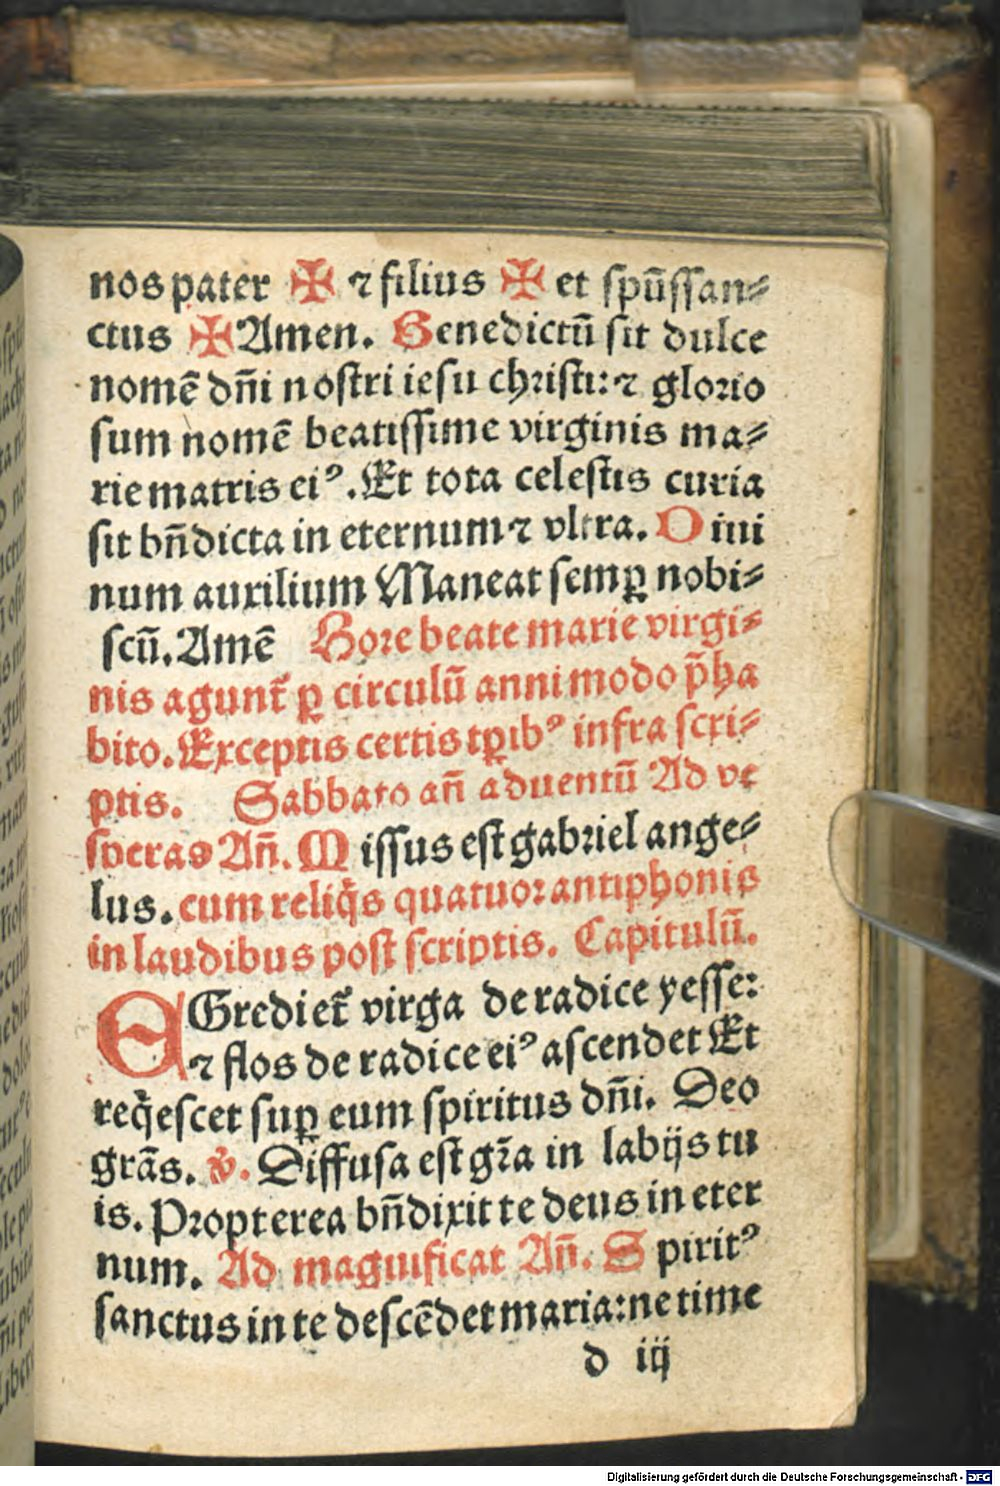 nos pater ✠ ⁊ filius ✠ et spūssan⸗
ctus ✠ Amen. Benedictū sit dulce
nomē dn̄i nostri iesu christi: ⁊ glorio
sum nomē beatissime virginis ma⸗
rie matris eiꝰ. Et tota celestis curia
sit bn̄dicta in eternum ⁊ vltra. Diui
num auxilium Maneat semꝑ nobi⸗
scū. Amē Hore beate marie virgi⸗
nis agunt᷑ ꝑ circulū anni modo p̄ha
bito. Exceptis certis tꝑibꝰ infra scri⸗
ptis. Sabbato an̄ aduentū Ad ve
speras An̄. Missus est gabriel ange⸗
lus. cum reliq̄s quatuor antiphonis
in laudibus post scriptis. Capitulū.
EGrediet᷑ virga de radice yesse:
⁊ flos de radice eiꝰ ascendet Et
req̄escet suꝑ eum spiritus dn̄i. Deo
grās. v̄. Diffusa est gr̄a in labijs tu
is. Propterea bn̄dixit te deus in eter
num. Ad magnificat An̄. Spiritꝰ
sanctus in te descēdet maria: ne time
d iij
Digitalisierung gefördert durch die Deutsche Forschungsgemeinschaft - DFG